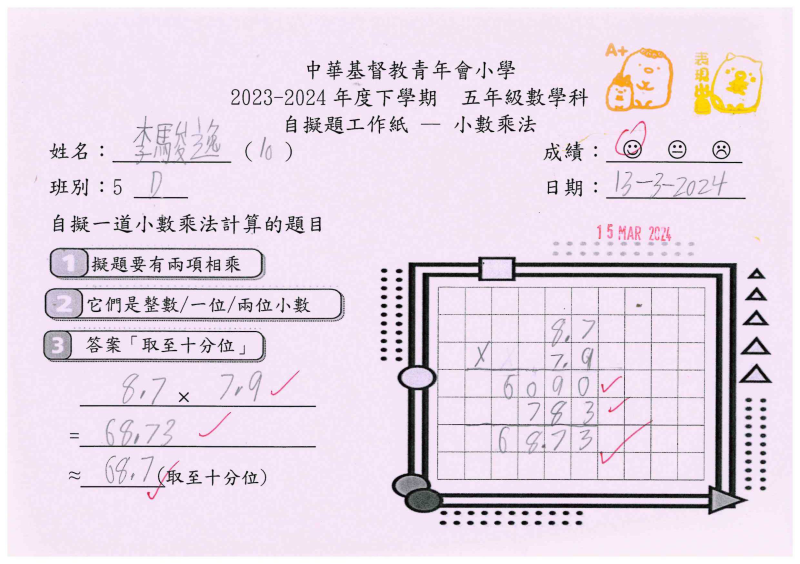 中華基督教青年會小學
2023-2024 年度下學期 五年級數學科
自擬題工作紙 — 小數乘法
A+
表現出色
姓名：李駿逸 (10)
成績：
班別：5 D
日期：13-3-2024
15 MAR 2024
自擬一道小數乘法計算的題目
1 擬題要有兩項相乘
2 它們是整數/一位/兩位小數
3 答案「取至十分位」
8.7 × 7.9
= 68.73
≈ 68.7 (取至十分位)
8.7
× 7.9
6090
783
68.73